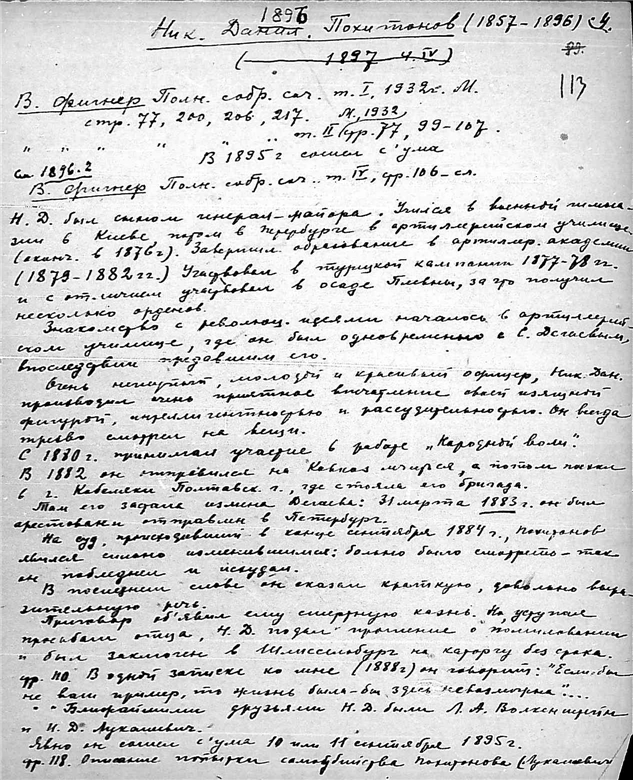 1896
Ник. Данил. Похитонов (1857-1896) с4.
(1897 4.IV)
89.
113
В. Фигнер Полн. собр. соч. т. I, 1932 г. М.
стр. 77, 200, 206, 217. М., 1932
" " " " " т. II стр. 77, 99-107.
В 1895 г сошел с'ума
1896.г
В. Фигнер Полн. собр. соч.. т. IV, стр. 106-сл.
Н. Д. был сыном генерал-майора. Учился в военной гимна-
зии в Киеве, потом в Петербурге в артиллерийском учили-
(оконч. в 1876 г). Завершил образование в артилер. академии
(1879-1882 гг.) Участвовал в турецкой кампании 1877-78 гг.
и с отличием участвовал в осаде Плевны, за что получил
несколько орденов.
Знакомство с революц. идеями началось в артиллерий-
ском училище, где он был одновременно с С. Дегаевым,
впоследствии предавшим его.
Очень неглупый, молодой и красивый офицер, Ник. Дан.
производил очень приятное впечатление своей изящной
фигурой, интеллигентностью и рассудительностью. Он всегда
трезво смотрел на вещи.
С 1880 г. принимал участие в работе „Народной воли".
В 1882 он отправился на Кавказ лечиться, а потом
в г. Кобеляки Полтавск. г., где стояла его бригада.
Там его застала измена Дегаева: 31 марта 1883 г. он был
арестован и отправлен в Петербург.
На суд, происходивший в конце сентября 1884 г., Похитонов
явился сильно изменившимся: больно было смотреть - так
он побледнел и исхудал.
В последнем слове он сказал краткую, довольно выра-
зительную речь.
Приговор об'явил ему смертную казнь. Но, уступая
просьбам отца, Н. Д. подал прошение о помиловании
и был заключен в Шлиссельбург на каторгу без срока.
стр. 110. В одной записке ко мне (1888 г) он говорит: "Если-бы
не ваш пример, то жизнь была-бы здесь невозможна"...
" " Ближайшими друзьями Н. Д. были Л. А. Волкенштейн
и И. Д. Лукашевич.
Явно он сошел с'ума 10 или 11 сентября 1895 г.
стр. 118. Описание попытки самоубийства Похитонова (Лукашевич